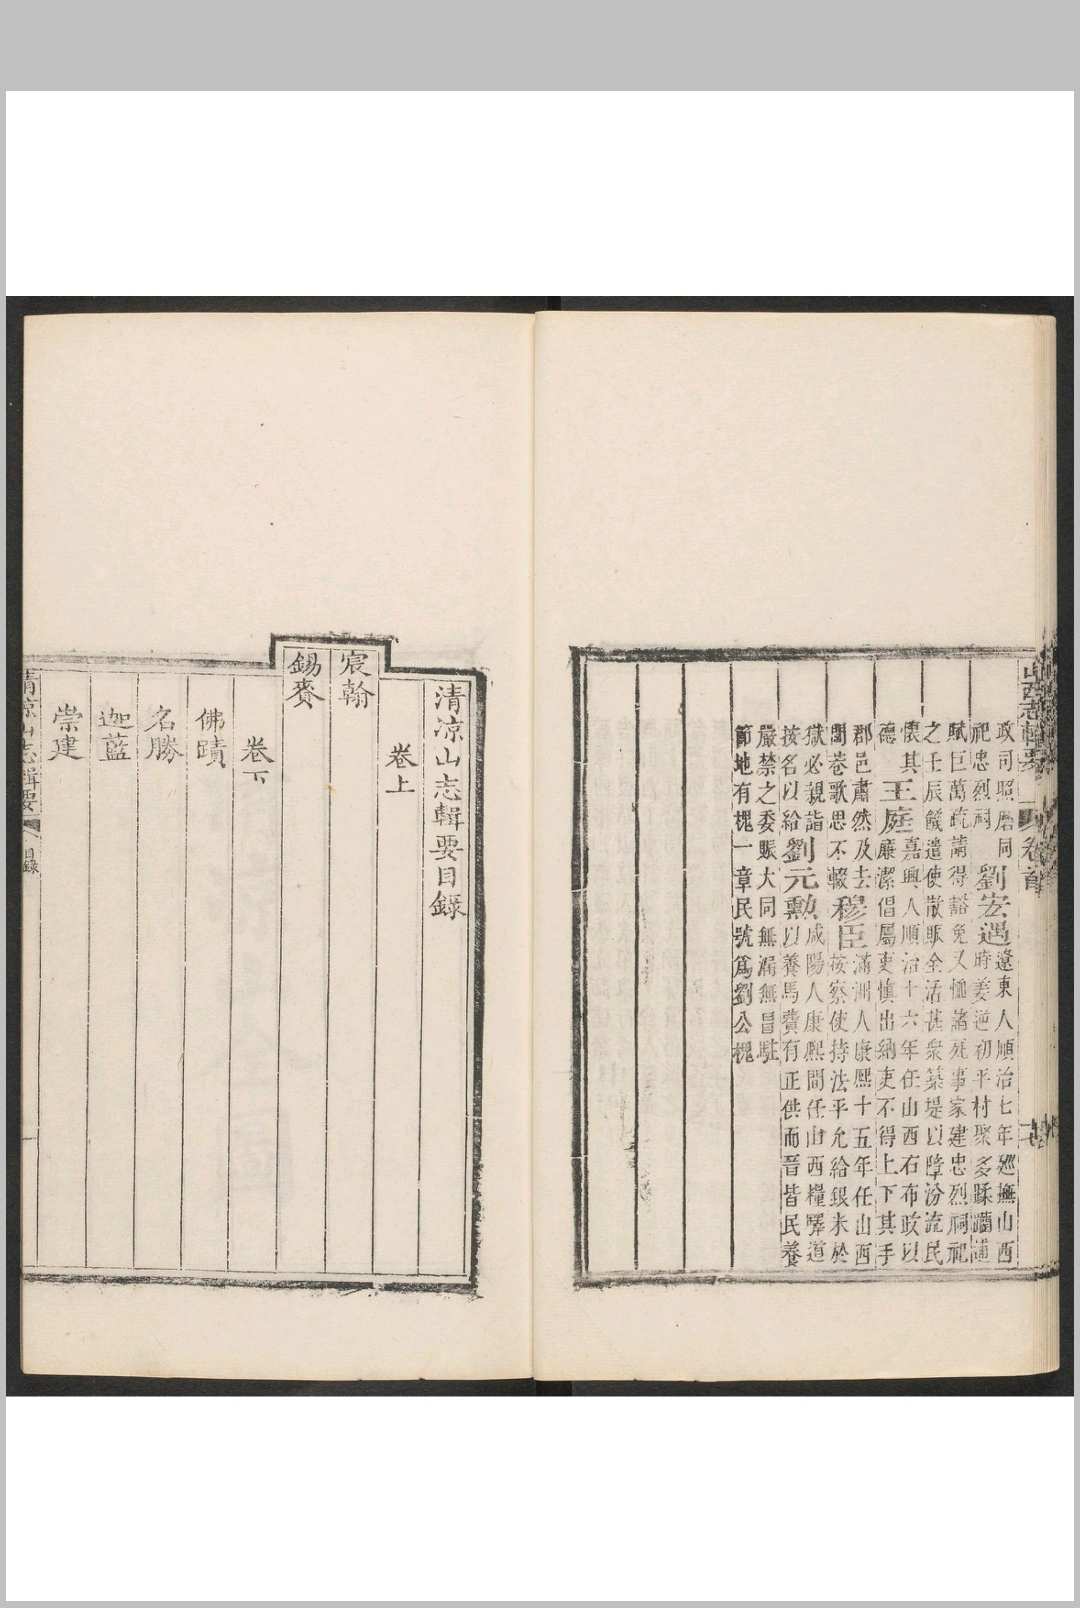 山西志輯要 卷首
政司照磨同
祀忠烈祠
劉宏遇
遼東人順治七年巡撫山西
時姜逆初平村聚多蹂躪逋
賦巨萬疏請得豁免又恤諸死事家建忠烈祠祀
之壬辰饑遣使散賑全活甚衆築堤以障汾流民
懷其
德
王庭
嘉興人順治十六年任山西右布政以
廉潔倡屬吏慎出納吏不得上下其手
郡邑肅然及去
閭巷歌思不輟
穆臣
滿洲人康熙十五年任山西
按察使持法平允給銀米於
獄必親詣
按名以給
劉元勲
咸陽人康熙間任山西糧驛道
以養馬費有正供而晉皆民養
嚴禁之委賑大同無漏無冒駐
節地有槐一章民號爲劉公槐
清凉山志輯要目錄
卷上
宸翰
錫賚
卷下
佛蹟
名勝
迦藍
崇建
清凉山志輯要 目錄 一